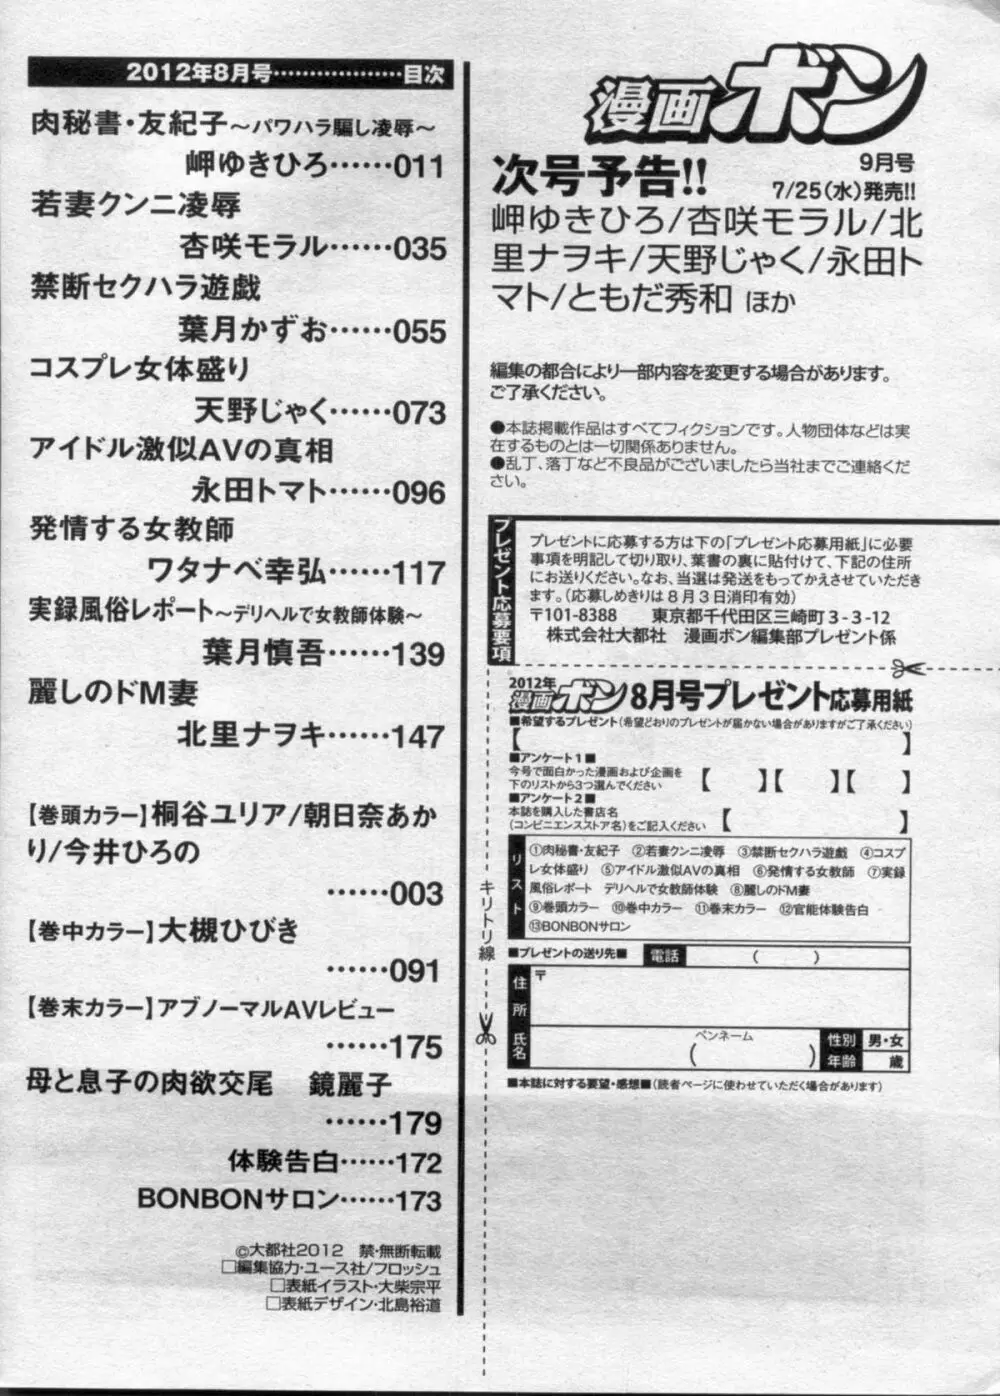 2012年8月号………………目次
肉秘書・友紀子～パワハラ騙し凌辱～
岬ゆきひろ……011
若妻クンニ凌辱
杏咲モラル……035
禁断セクハラ遊戯
葉月かずお……055
コスプレ女体盛り
天野じゃく……073
アイドル激似AVの真相
永田トマト……096
発情する女教師
ワタナベ幸弘……117
実録風俗レポート～デリヘルで女教師体験～
葉月慎吾……139
麗しのドM妻
北里ナヲキ……147
【巻頭カラー】桐谷ユリア/朝日奈あか
り/今井ひろの
……003
【巻中カラー】大槻ひびき
……091
【巻末カラー】アブノーマルAVレビュー
……175
母と息子の肉欲交尾　鏡麗子
……179
体験告白……172
BONBONサロン……173
©大都社2012　禁・無断転載
□編集協力・ユース社/フロッシュ
□表紙イラスト・大柴宗平
□表紙デザイン・北島裕道
漫画ボン
次号予告!!
9月号
7/25(水)発売!!
岬ゆきひろ/杏咲モラル/北
里ナヲキ/天野じゃく/永田ト
マト/ともだ秀和 ほか
編集の都合により一部内容を変更する場合があります。
ご了承ください。
●本誌掲載作品はすべてフィクションです。人物団体などは実
在するものとは一切関係ありません。
●乱丁、落丁など不良品がございましたら当社までご連絡くだ
さい。
プレゼント応募要項
プレゼントに応募する方は下の「プレゼント応募用紙」に必要
事項を明記して切り取り、葉書の裏に貼付けて、下記の住所
にお送りください。なお、当選は発送をもってかえさせていただき
ます。(応募しめきりは8月3日消印有効)
〒101-8388　東京都千代田区三崎町3-3-12
株式会社大都社　漫画ボン編集部プレゼント係
キリトリ線
2012年
漫画ボン8月号プレゼント応募用紙
■希望するプレゼント(希望どおりのプレゼントが届かない場合がありますがご了承ください)
【　】
■アンケート1■
今号で面白かった漫画および企画を
下のリストから3つ選んでください
【　】【　】【　】
■アンケート2■
本誌を購入した書店名
(コンビニエンスストア名)をご記入ください
【　】
リスト
①肉秘書・友紀子　②若妻クンニ凌辱　③禁断セクハラ遊戯　④コスプ
レ女体盛り　⑤アイドル激似AVの真相　⑥発情する女教師　⑦実録
風俗レポート　デリヘルで女教師体験　⑧麗しのドM妻
⑨巻頭カラー　⑩巻中カラー　⑪巻末カラー　⑫官能体験告白
⑬BONBONサロン
■プレゼントの送り先■
電話
(　)
住所
〒
氏名
ペンネーム
(　)
性別
男・女
年齢
歳
■本誌に対する要望・感想■(読者ページに使わせていただく場合があります)